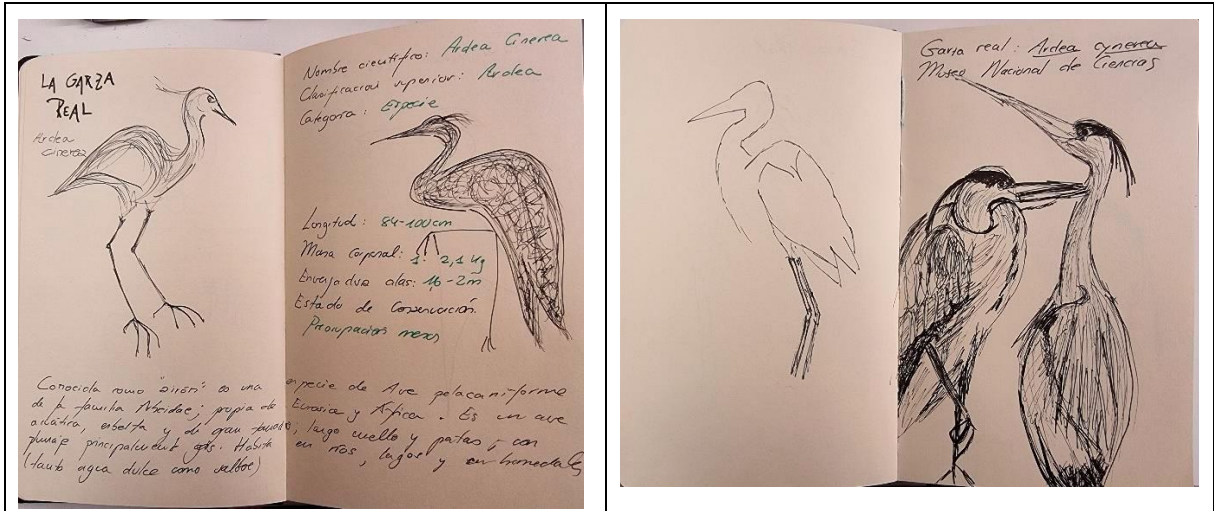 LA GARZA
REAL
Ardea
Cinerea
Nombre científico: Ardea Cinerea
Clasificación superior: Ardea
Categoría: Especie
Longitud: 84-100cm
Masa corporal: 1- 2,1 Kg
Envergadura alas: 1,6-2m
Estado de Conservación:
Preocupación menor
Conocida como "airón" es una especie de Ave pelecaniforme
de la familia Ardeidae; propia de Eurasia y África. Es un ave
acuática, esbelta y de gran tamaño, largo cuello y patas, con
plumaje principalmente gris. Habita en ríos, lagos y en humedales
(tanto agua dulce como
Garza real: Ardea cynerea
Museo Nacional de Ciencias